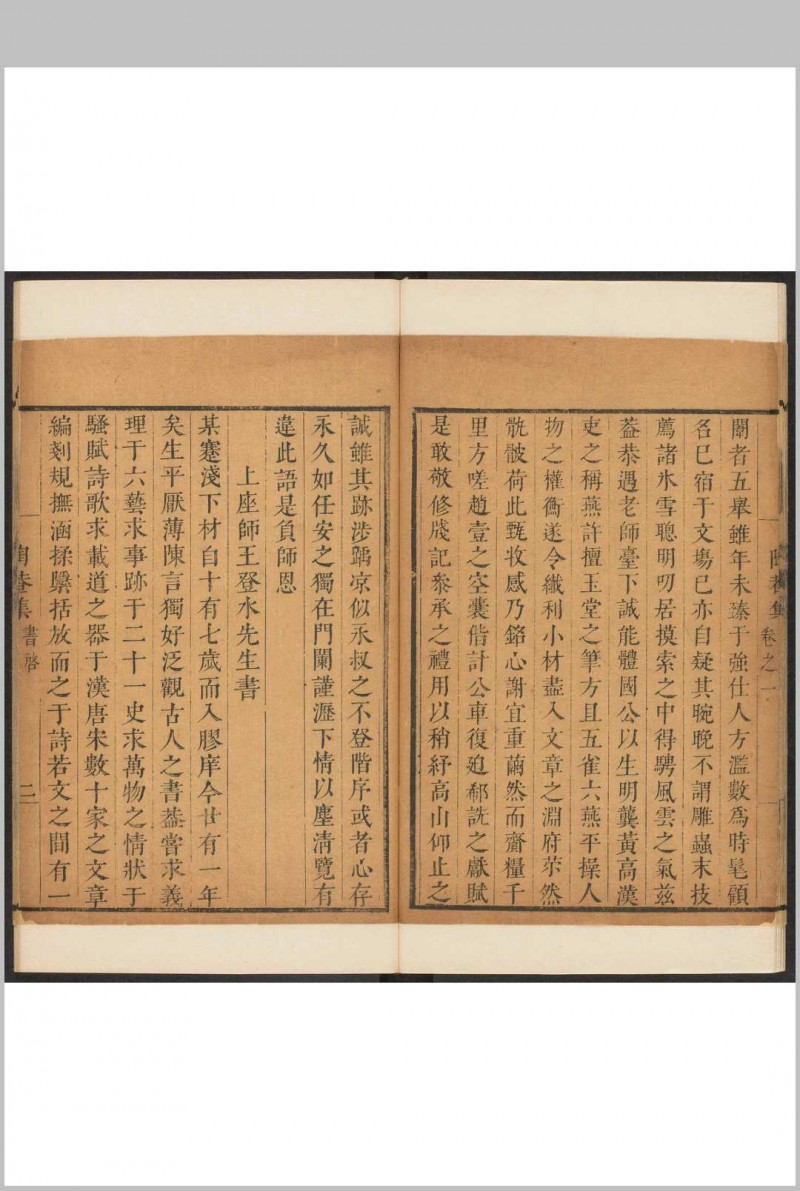 卷之一
闈者五舉雖年未臻于強仕人方濫數爲時髦顧
名已宿于文塲已亦自疑其晼晚不謂雕蟲末技
薦諸氷雪聰明叨居摸索之中得騁風雲之氣兹
葢恭遇老師臺下誠能體國公以生明龔黃高漢
吏之稱燕許擅玉堂之筆方且五雀六燕平操人
物之權衡遂令纖利小材盡入文章之淵府茶然
骯骳荷此甄收感乃銘心謝宜重繭然而齎糧千
里方嗟趙壹之空囊偕計公車復迫郗詵之獻賦
是敢敬修牋記叅承之禮用以稍紓高山仰止之
誠雖其跡涉踽凉似永叔之不登階序或者心存
永久如任安之獨在門闌謹瀝下情以塵淸覽有
違此語是負師恩
上座師王登水先生書
某蹇淺下材自十有七歲而入膠庠今廿有一年
矣生平厭薄陳言獨好泛觀古人之書葢嘗求義
理于六藝求事跡于二十一史求萬物之情狀于
騷賦詩歌求載道之器于漢唐宋數十家之文章
編剡規撫涵揉檃括放而之于詩若文之間有一
陶菴集
書啓
三